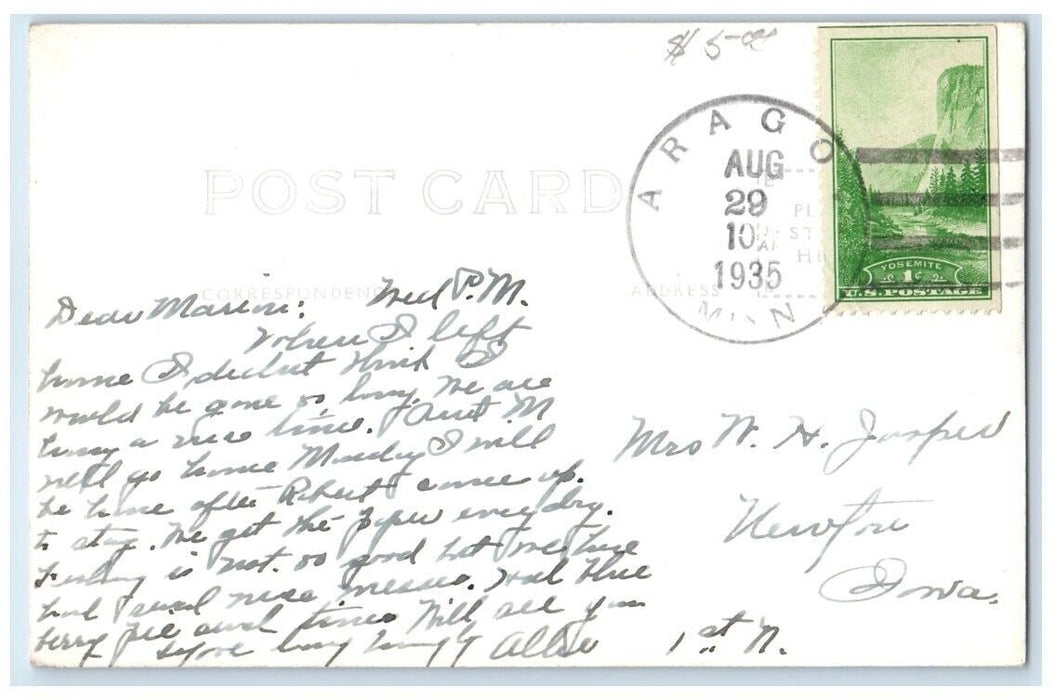 $ 5.00
POST CARD
ARAGO
AUG
29
10
AM
1935
MINN
PL
ST
HE
YOSEMITE
1¢
U.S. POSTAGE
CORRESPONDENC
ADDRESS
Dear Marion: Wed P.M.
When I left
home I didnt think I
would be gone so long. We are
having a nice time. Aunt M
will go home Monday I will
be home after Robert comes up.
to stay. We get the paper every day.
Fishing is not so good but we have
had several nice messes. Had blue
berry pie several times Will see you
before long lovingly Allie
Mrs W. H. Jasper
Newton
Iowa.
1st N.